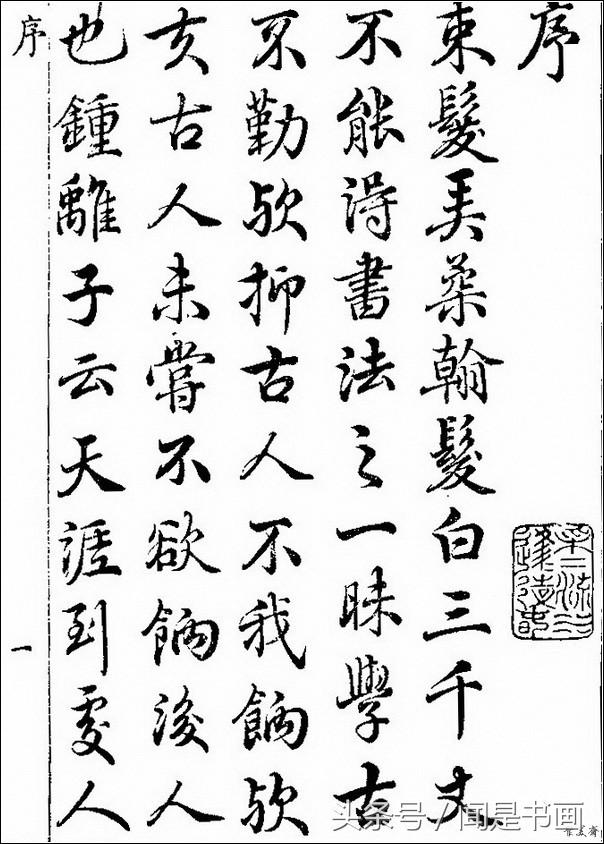 序
束髮弄柔翰髮白三千丈
不能得書法之一昧學古
不勤歟抑古人不我餉歟
古人未嘗不欲餉後人
也鍾離子云天涯到處人
序
一
头条号/闻是书画